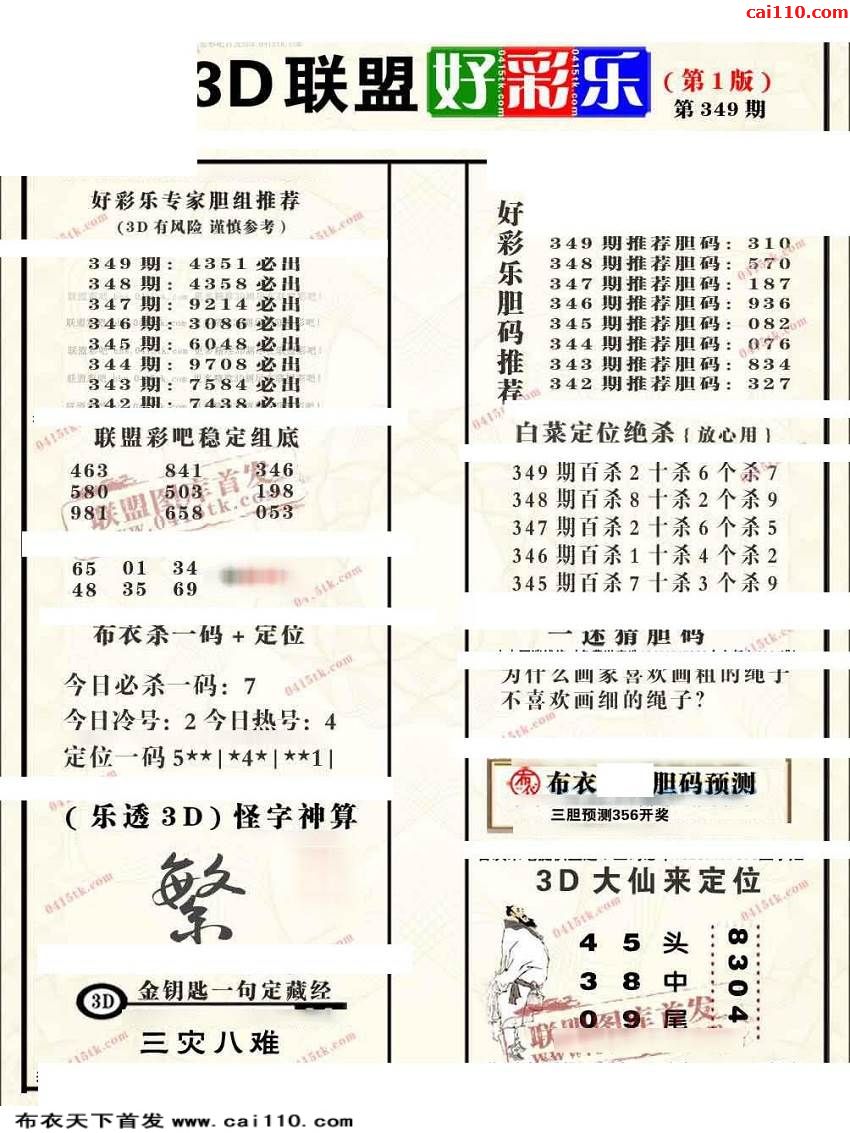 cai110.com
3D联盟好彩乐
(第1版)
第349期
好彩乐专家胆组推荐
(3D有风险 谨慎参考)
349期: 4351必出
348期: 4358必出
347期: 9214必出
346期: 3086必出
345期: 6048必出
344期: 9708必出
343期: 7584必出
342期: 7438必出
联盟彩吧稳定组底
463 841 346
580 503 198
981 658 053
65 01 34
48 35 69
布衣杀一码+定位
今日必杀一码: 7
今日冷号: 2 今日热号: 4
定位一码 5**|*4*|**1|
(乐透3D)怪字神算
繁
3D 金钥匙一句定藏经
三灾八难
好彩乐胆码推荐
349期推荐胆码: 310
348期推荐胆码: 570
347期推荐胆码: 187
346期推荐胆码: 936
345期推荐胆码: 082
344期推荐胆码: 076
343期推荐胆码: 834
342期推荐胆码: 327
白菜定位绝杀{放心用}
349期百杀2十杀6个杀7
348期百杀8十杀2个杀9
347期百杀2十杀6个杀5
346期百杀1十杀4个杀2
345期百杀7十杀3个杀9
一迷猜胆码
为什么画家喜欢画粗的绳子
不喜欢画细的绳子?
布 布衣 胆码预测
三胆预测356开奖
3D大仙来定位
4 5 头
3 8 中
0 9 尾
8304
联盟图库首发
www.0415tk.com
布衣天下首发 www.cai110.com